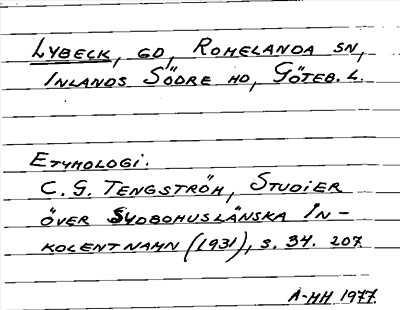 Lybeck, gd, Romelanda sn,
Inlands Södre hd, Göteb. l.
Etymologi.
C. G. Tengström, Studier
över sydbohuslänska in-
kolentnamn (1931), s. 34. 207.
A-HH 1977.